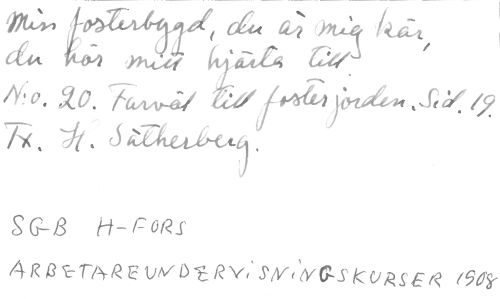 Min fosterbygd, du är mig kär,
du hör mitt hjärta till.
N:o. 20. Farväl till fosterjorden. Sid. 19.
Tx. H. Sätherberg.
SGB H-FORS
ARBETAREUNDERVISNINGSKURSER 1908